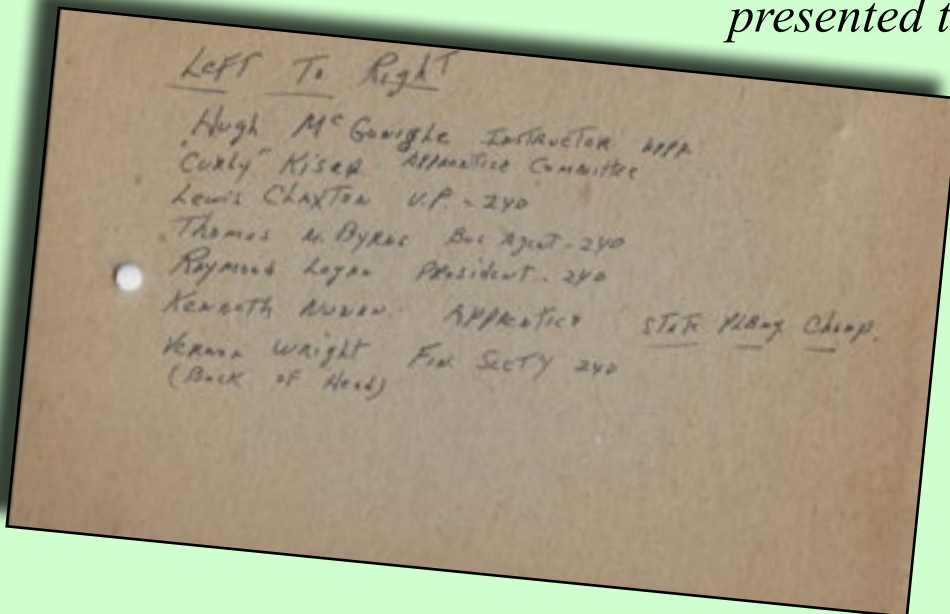 presented t
Left To Right
Hugh McGonigle Instructor Appr
"Curly" Kiser Apprentice Committee
Lewis Claxton V.P. - 240
Thomas N. Byrne Bus Agent - 240
Raymond Logan President - 240
Kenneth Nunan Apprentice State Plbng Champ.
Vernon Wright Fin SectY 240
(Back of Head)